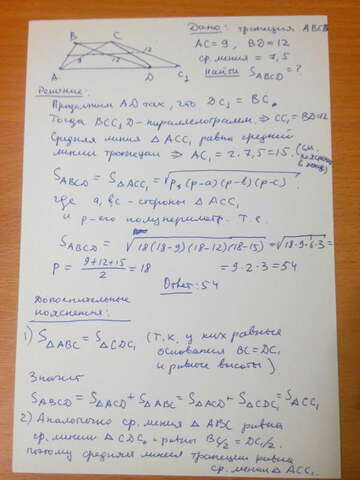 Дано: трапеция ABCD
AC = 9, BD = 12
ср. линия = 7,5
найти S_ABCD = ?
B C 12 9 A D C₁
Решение:
Продолжим AD так, что DC₁ = BC.
Тогда BCC₁D - параллелограм. ⇒ CC₁ = BD = 12
Средняя линия △ACC₁ равна средней
линии трапеции ⇒ AC₁ = 2·7,5 = 15. (см. пояснения в конце)
S_ABCD = S_△ACC₁ = √p·(p-a)(p-b)(p-c),
где a, b, c - стороны △ACC₁
и p - его полупериметр. Т.е.
S_ABCD = √18(18-9)(18-12)(18-15) = √18·9·6·3 =
p = (9+12+15)/2 = 18 = 9·2·3 = 54
Ответ: 54
Дополнительные
пояснения:
1) S_△ABC = S_△CDC₁ (т.к. у них равные
основания BC = DC₁
и равные высоты).
Значит
S_ABCD = S_△ACD + S_△ABC = S_△ACD + S_△CDC₁ = S_△ACC₁
2) Аналогично ср. линия △ABC равна
ср. линии △CDC₁ и равны BC/2 = DC₁/2.
поэтому средняя линия трапеции равна
ср. линии △ACC₁.